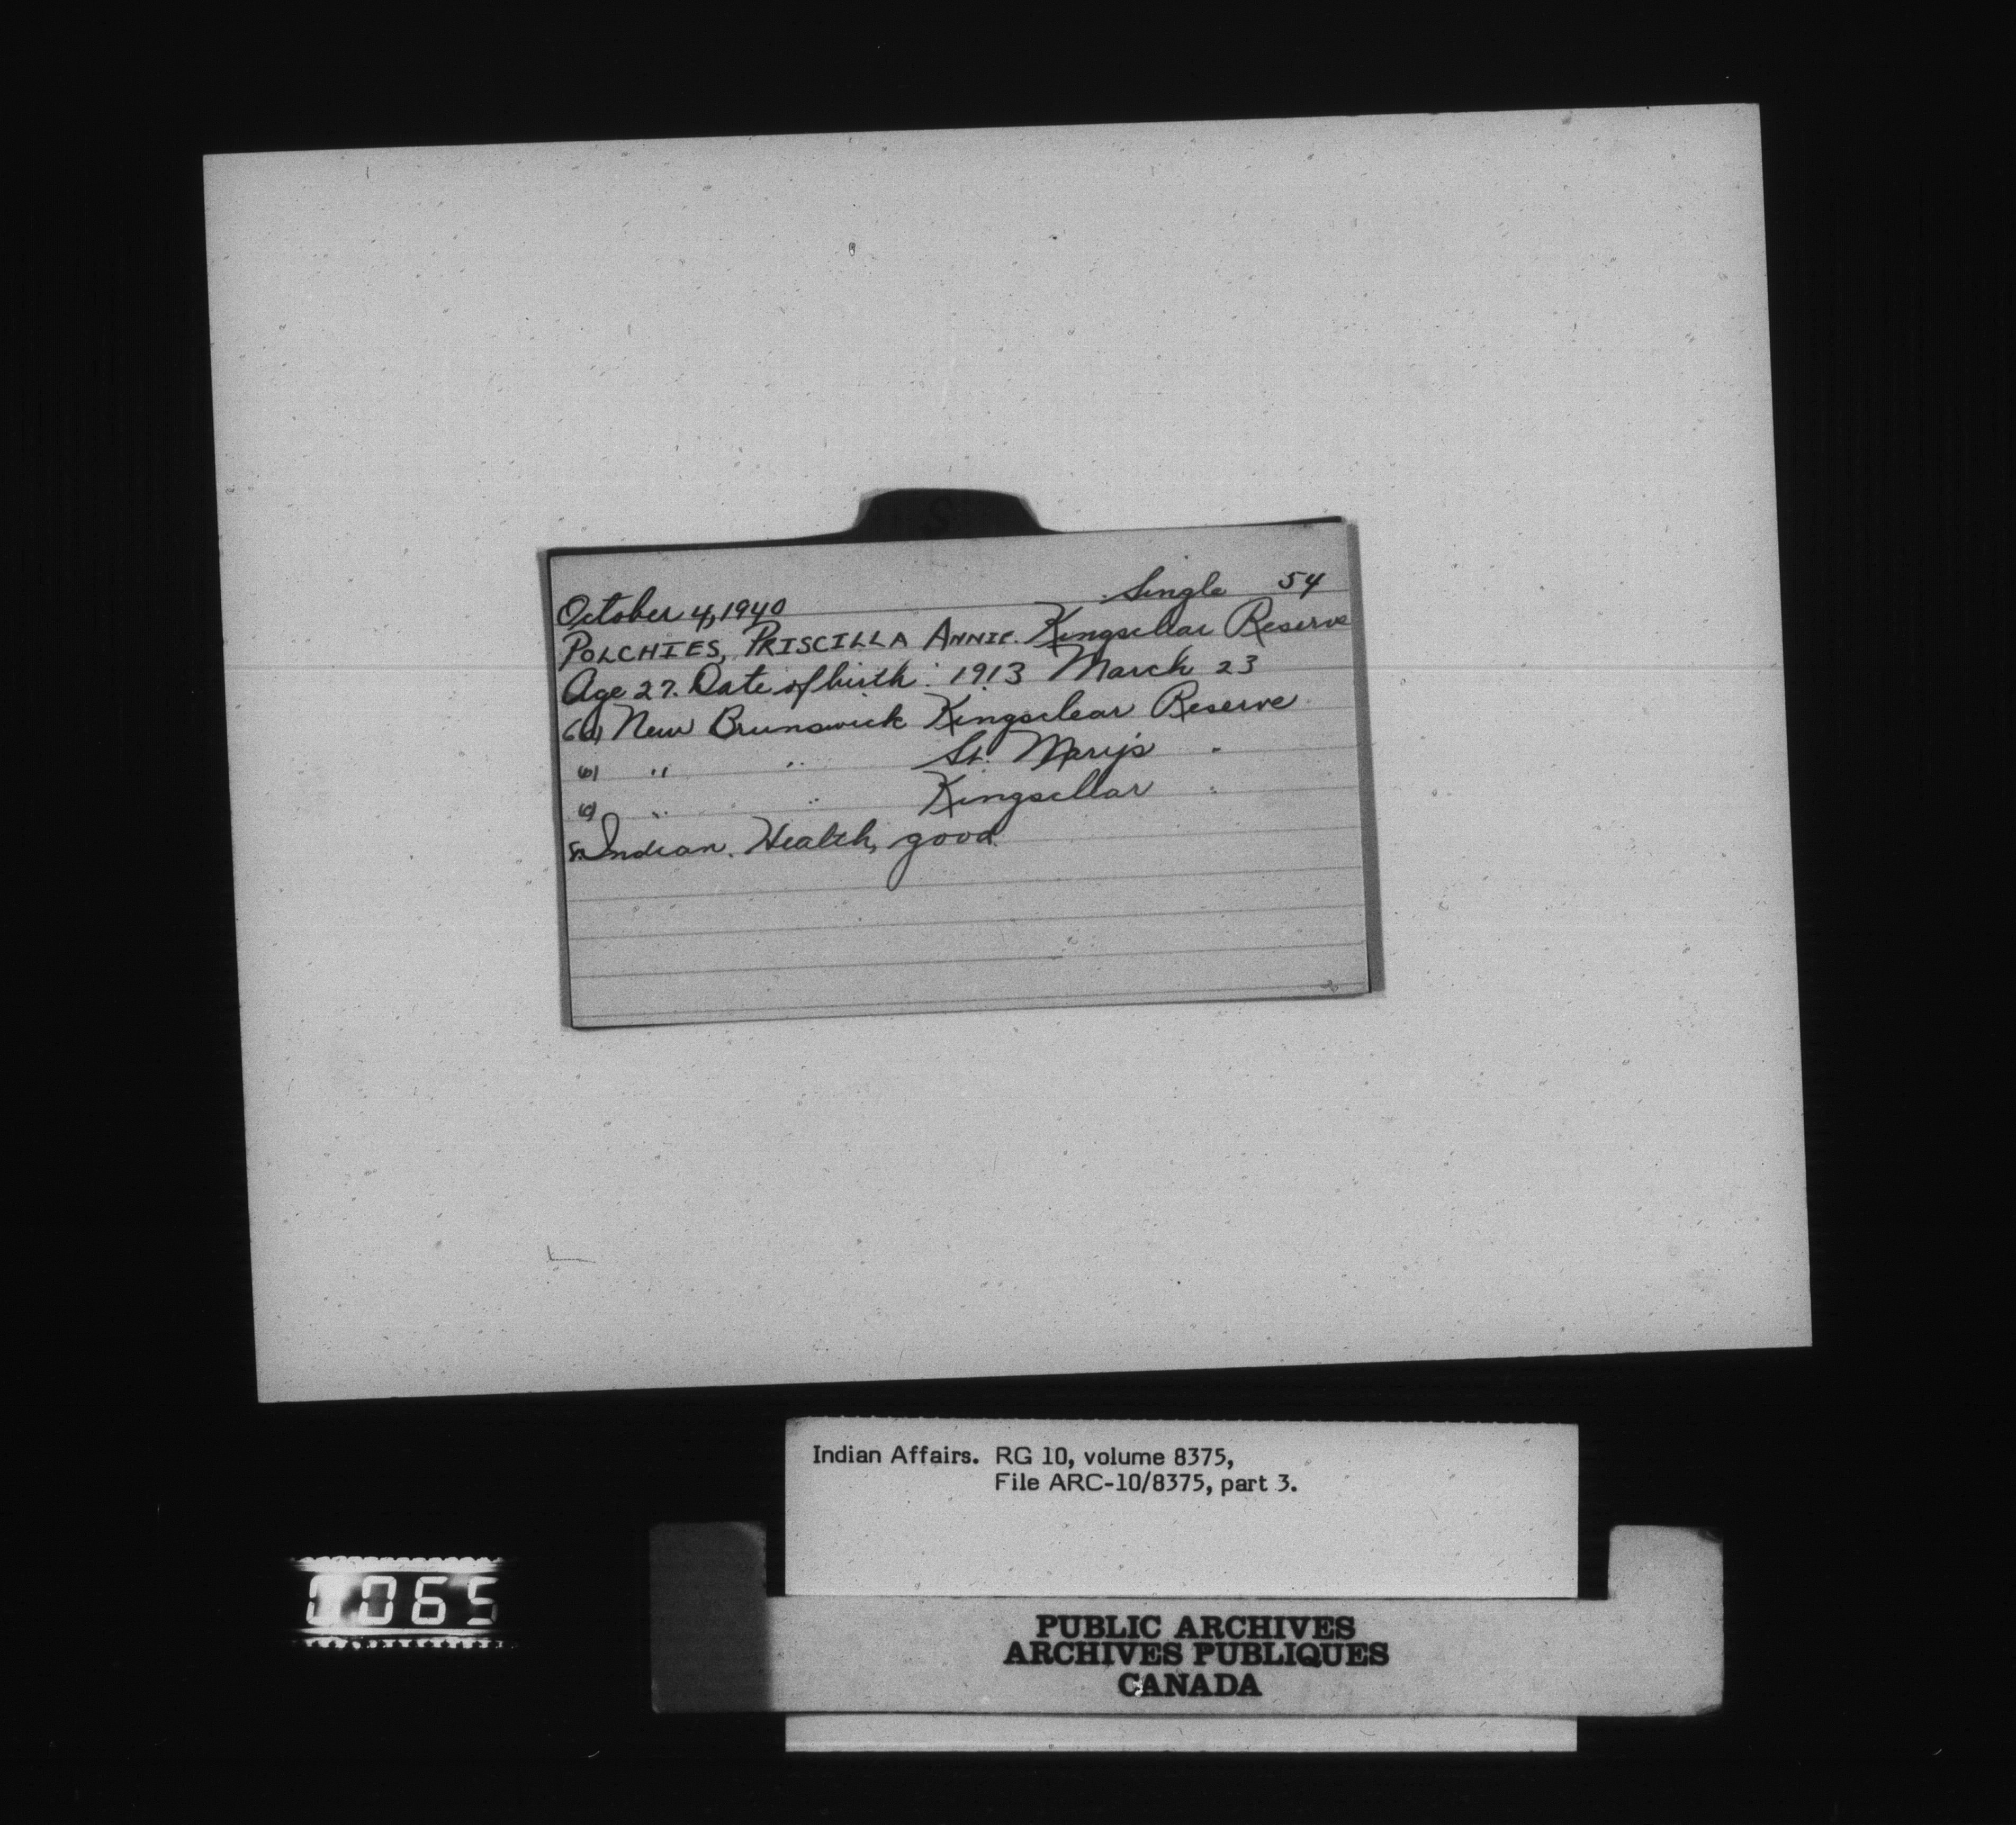 S
October 4, 1940 Single 54
POLCHIES, PRISCILLA ANNIE. Kingsclear Reserve
Age 27. Date of birth: 1913 March 23
6(a) New Brunswick Kingsclear Reserve
(b) " " St. Mary's "
(c) " " Kingsclear "
8. Indian. Health, good.
Indian Affairs. RG 10, volume 8375,
File ARC-10/8375, part 3.
0065
PUBLIC ARCHIVES
ARCHIVES PUBLIQUES
CANADA